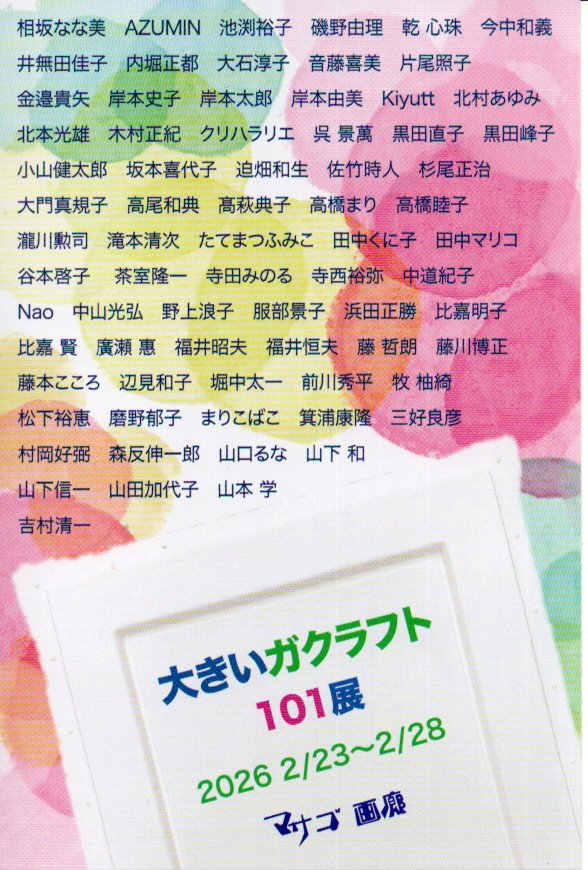 相坂なな美 AZUMIN 池渕裕子 磯野由理 乾 心珠 今中和義
井無田佳子 内堀正都 大石淳子 音藤喜美 片尾照子
金邉貴矢 岸本史子 岸本太郎 岸本由美 Kiyutt 北村あゆみ
北本光雄 木村正紀 クリハラリエ 呉 景萬 黒田直子 黒田峰子
小山健太郎 坂本喜代子 迫畑和生 佐竹時人 杉尾正治
大門真規子 高尾和典 髙萩典子 高橋まり 高橋睦子
瀧川勲司 滝本清次 たてまつふみこ 田中くに子 田中マリコ
谷本啓子 茶室隆一 寺田みのる 寺西裕弥 中道紀子
Nao 中山光弘 野上浪子 服部景子 浜田正勝 比嘉明子
比嘉 賢 廣瀬 惠 福井昭夫 福井恒夫 藤 哲朗 藤川博正
藤本こころ 辺見和子 堀中太一 前川秀平 牧 柚綺
松下裕恵 磨野郁子 まりこばこ 箕浦康隆 三好良彦
村岡好弼 森反伸一郎 山口るな 山下 和
山下信一 山田加代子 山本 学
吉村清一
大きいガクラフト
101展
2026 2/23〜2/28
マサゴ 画廊